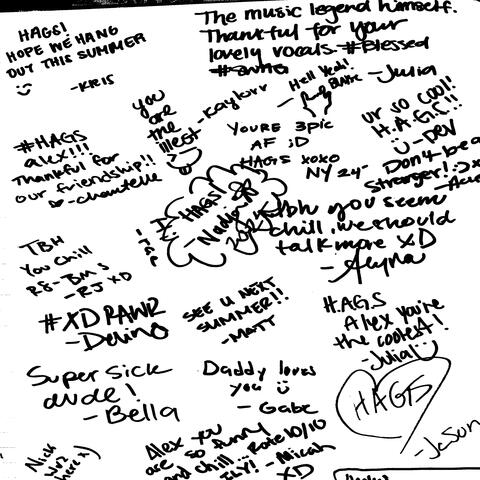 HAGS!
HOPE WE HANG
OUT THIS SUMMER
-KRIS
The music legend himself.
Thankful for your
lovely vocals. #Blessed
-Julia
Hell Yeah!
you
are
the
illest
-Kaylorr
YOURE 3pic
AF ;D
HAGS XOXO
NY 24-
ur so cool!
H.A.G.S!!
-DEV
Don't be a
Stranger!
#HAGS
alex!!!
Thankful for
our friendship!!
-chantelle
HAGS!
-Nadja
tbh you seem
chill, we should
talk more XD
-Alyna
TBH
You chill
R8- BMS
-RJ XD
#XD RAWR
-Devino
SEE U NEXT
SUMMER!!
-MATT
H.A.G.S
Alex you're
the coolest!
-Julia
Super sick
dude!
-Bella
Daddy loves
you
-Gabe
HAGS
-Jason
Nick
wuz
here x)
Alex you
are so funny
and chill... Rate 10/10
ILY! -Micah
XD